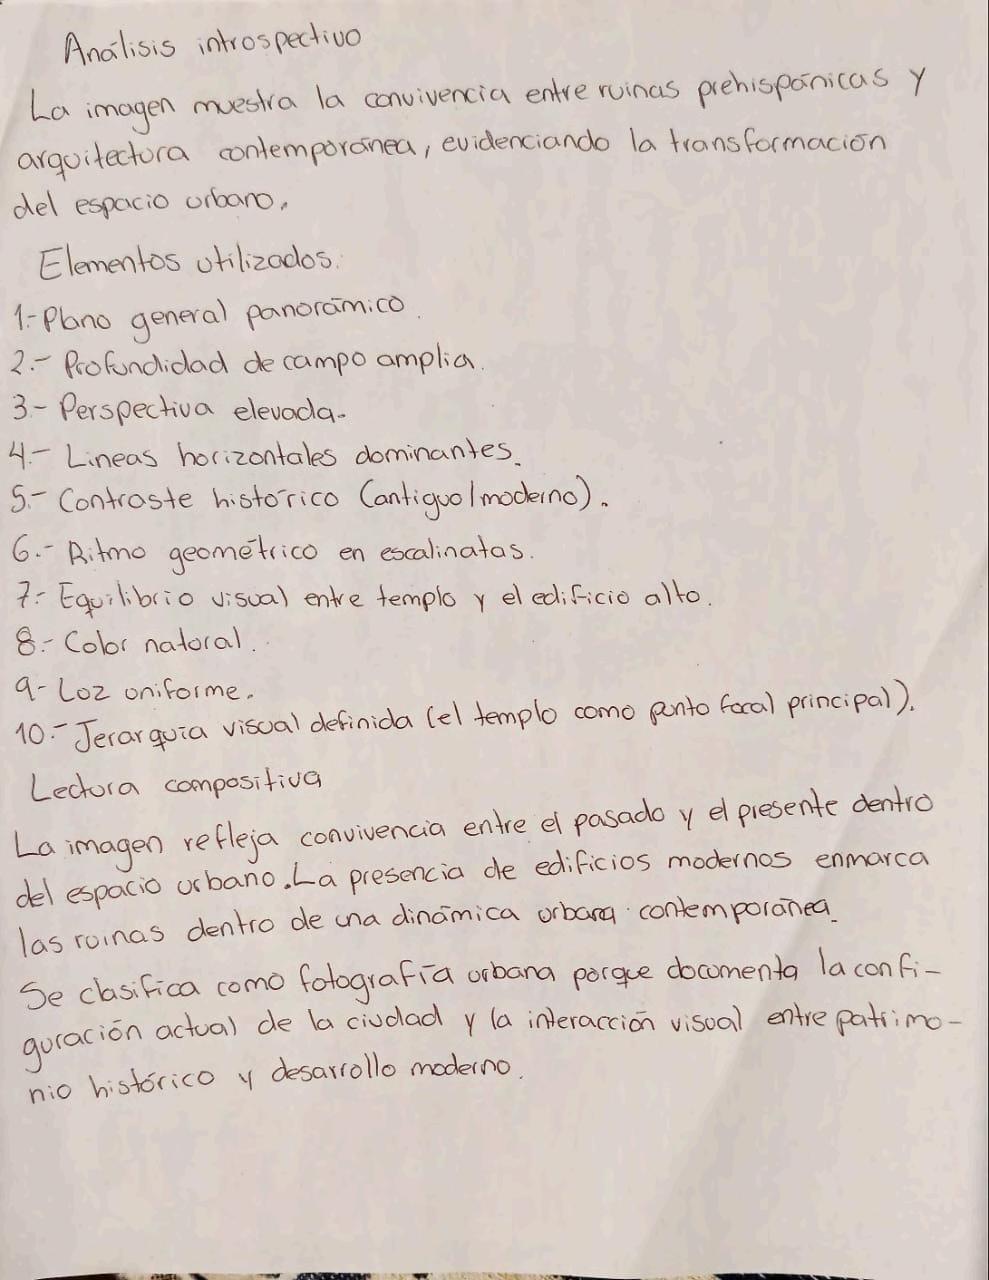 Análisis introspectivo
La imagen muestra la convivencia entre ruinas prehispánicas y
arquitectura contemporánea, evidenciando la transformación
del espacio urbano.
Elementos utilizados.
1.- Plano general panorámico.
2.- Profundidad de campo amplia.
3.- Perspectiva elevada.
4.- Lineas horizontales dominantes.
5.- Contraste histórico (antiguo/moderno).
6.- Ritmo geométrico en escalinatas.
7.- Equilibrio visual entre templo y el edificio alto.
8.- Color natural.
9- Luz uniforme.
10.- Jerarquía visual definida (el templo como punto focal principal).
Lectura compositiva
La imagen refleja convivencia entre el pasado y el presente dentro
del espacio urbano. La presencia de edificios modernos enmarca
las ruinas dentro de una dinámica urbana contemporánea.
Se clasifica como fotografía urbana porque documenta la confi-
guración actual de la ciudad y la interacción visual entre patrimo-
nio histórico y desarrollo moderno.